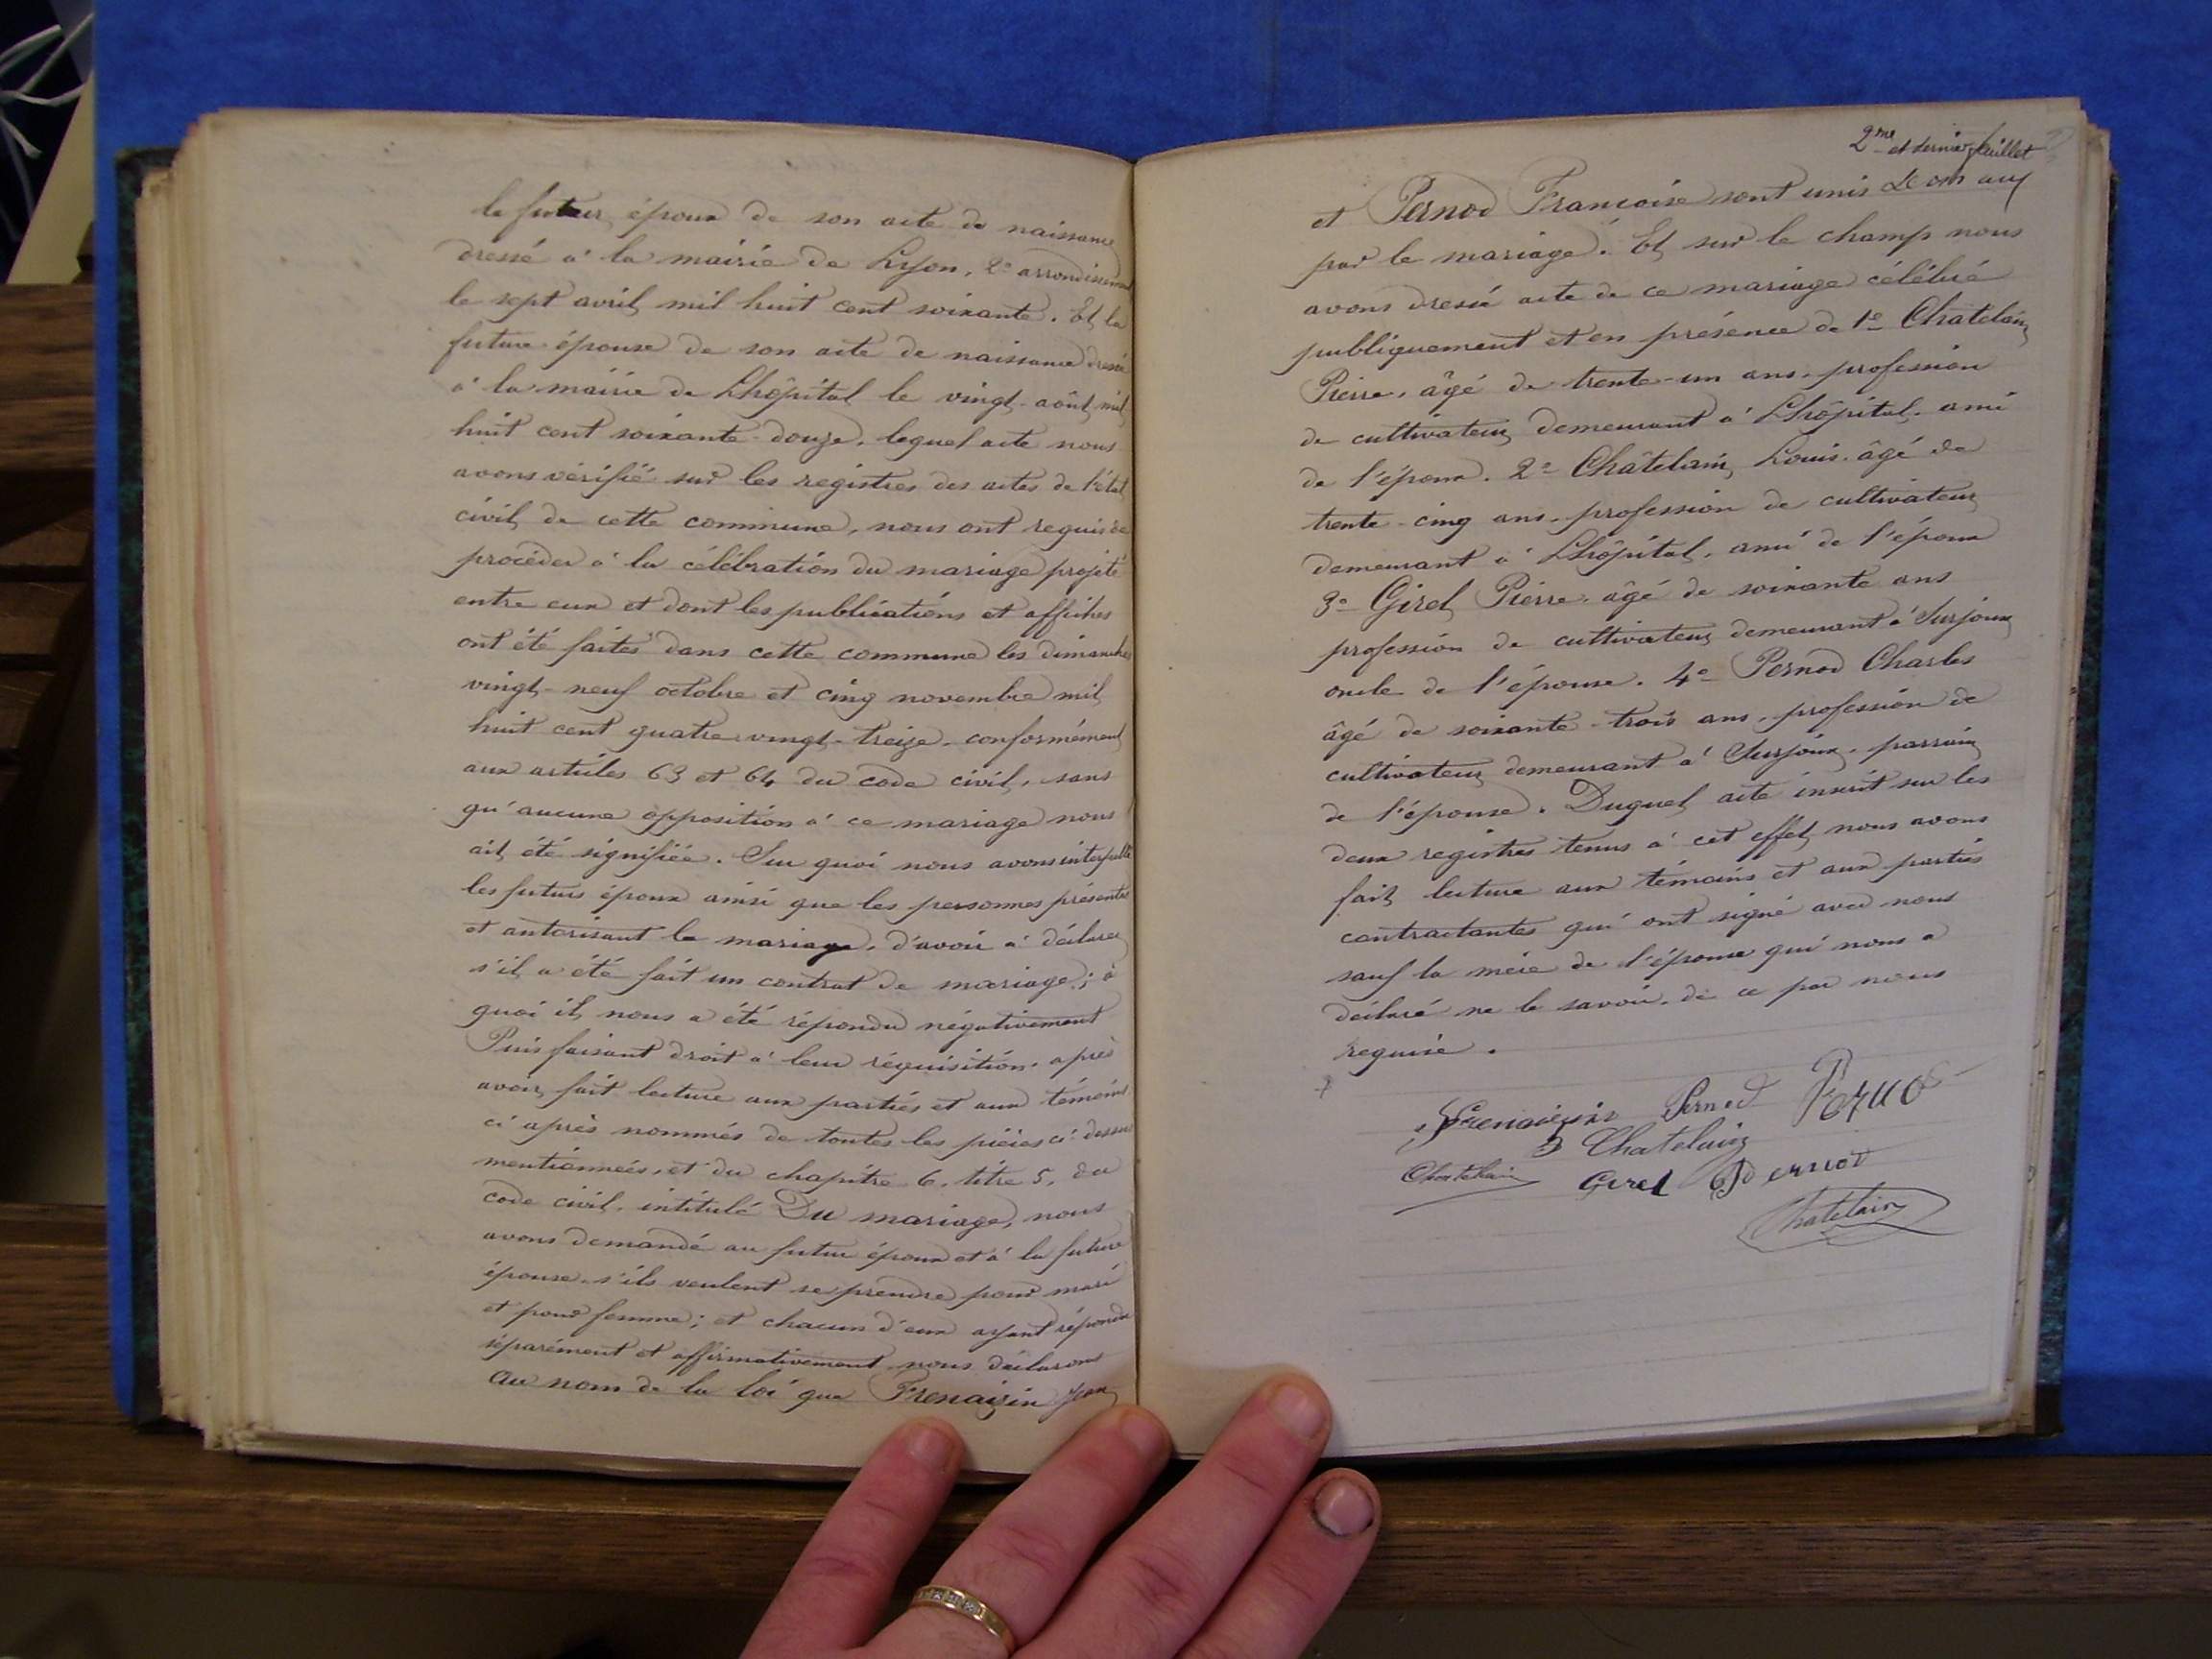 le futur époux de son acte de naissance
dressé à la mairie de Lyon, 2e arrondissement
le sept avril mil huit cent soixante. Et la
future épouse de son acte de naissance dressé
à la mairie de Lhôpital le vingt août mil
huit cent soixante-douze, lequel acte nous
avons vérifié sur les registres des actes de l'état
civil de cette commune, nous ont requis de
procéder à la célébration du mariage projeté
entre eux et dont les publications et affiches
ont été faites dans cette commune les dimanches
vingt-neuf octobre et cinq novembre mil
huit cent quatre vingt-treize, conformément
aux articles 63 et 64 du code civil, sans
qu'aucune opposition à ce mariage nous
ait été signifiée. Sur quoi nous avons interpellé
les futurs époux ainsi que les personnes présentes
et autorisant le mariage, d'avoir à déclarer
s'il a été fait un contrat de mariage; à
quoi il nous a été répondu négativement
Puis faisant droit à leur réquisition, après
avoir fait lecture aux parties et aux témoins
ci après nommés de toutes les pièces ci-dessus
mentionnées, et du chapitre 6, titre 5, du
code civil, intitulé Du mariage, nous
avons demandé au futur époux et à la future
épouse s'ils veulent se prendre pour mari
et pour femme; et chacun d'eux ayant répondu
séparément et affirmativement nous déclarons
au nom de la loi que Frenaizin Jean
2me et dernier feuillet
et Pernod Françoise sont unis
par le mariage. Et sur le champ nous
avons dressé acte de ce mariage célébré
publiquement et en présence de 1e Chatelain
Pierre, âgé de trente-un ans, profession
de cultivateur demeurant à Lhôpital, ami
de l'époux. 2e Châtelain Louis âgé de
trente-cinq ans, profession de cultivateur
demeurant à Lhôpital, ami de l'époux
3e Girel Pierre âgé de soixante ans
profession de cultivateur demeurant à Surjoux
oncle de l'épouse. 4e Pernod Charles
âgé de soixante-trois ans, profession de
cultivateur demeurant à Surjoux, parrain
de l'épouse. Duquel acte inscrit sur les
deux registres tenus à cet effet nous avons
fait lecture aux témoins et aux parties
contractantes qui ont signé avec nous
sauf la mère de l'épouse qui nous a
déclaré ne le savoir, de ce par nous
requise.
Frenaizin Pernod Pernod
Chatelain
Chatelain Girel Pernod
Chatelain